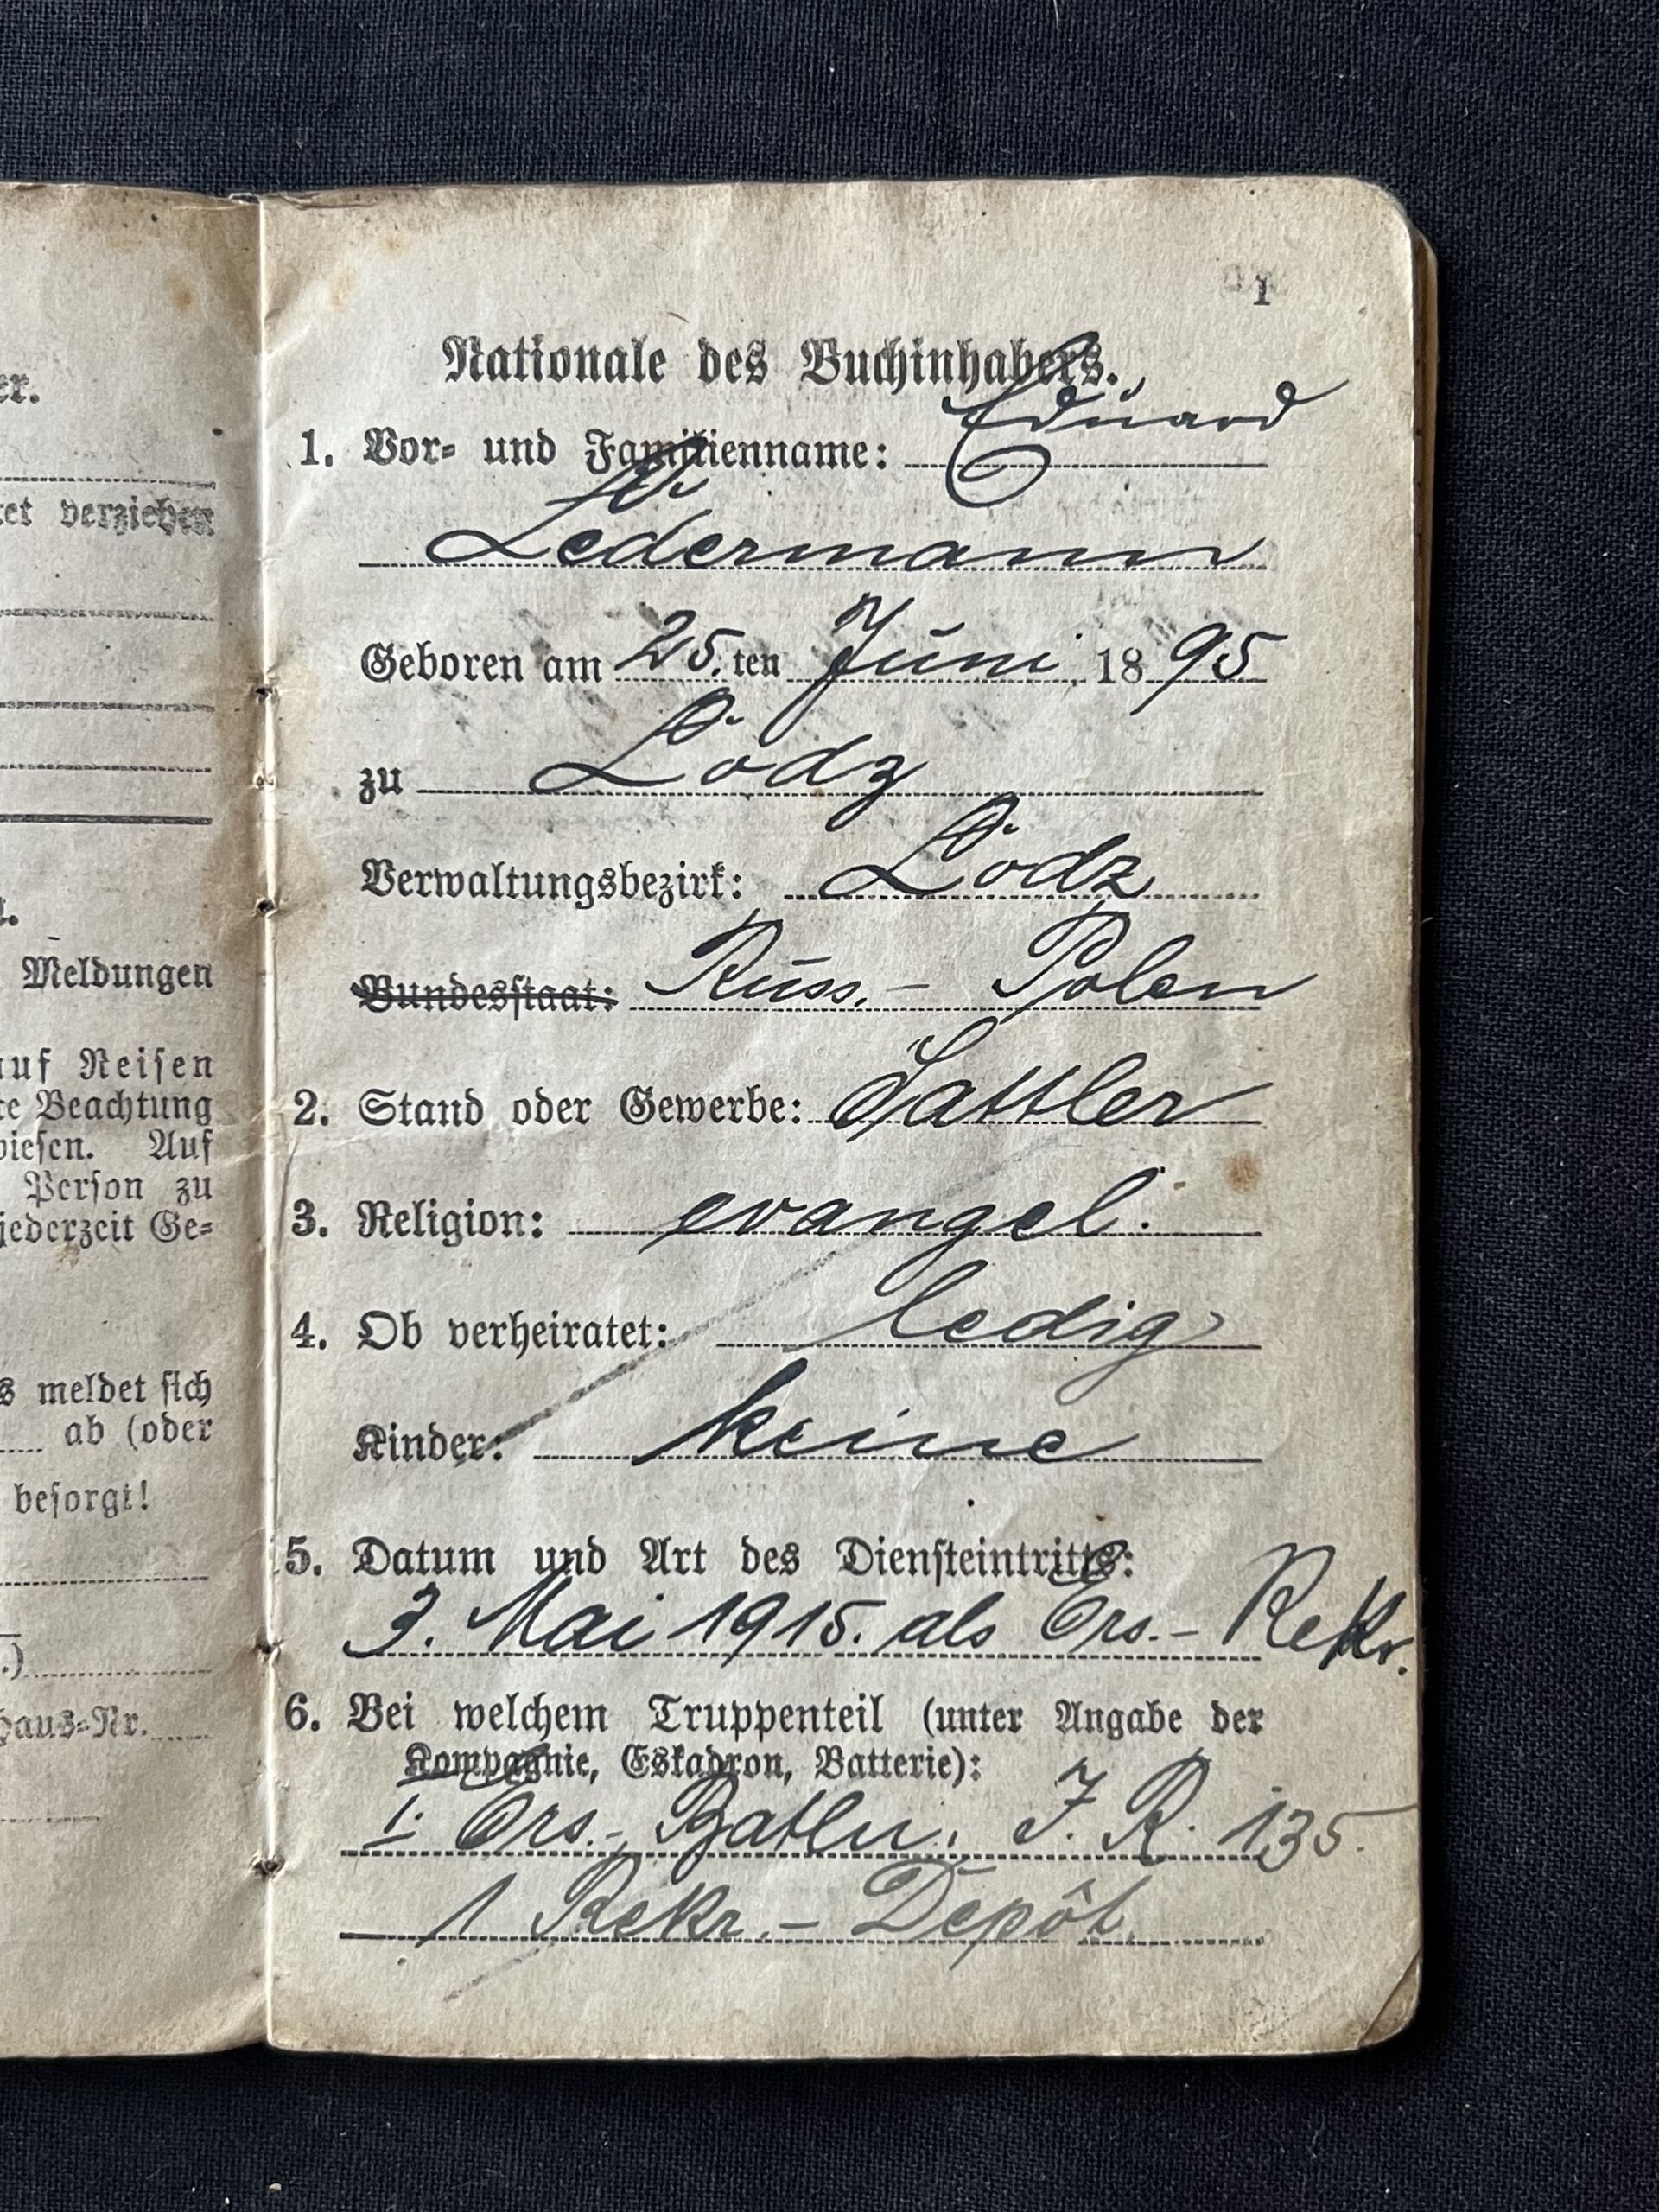 er.
tet verziehen
Meldungen
auf Reisen
te Beachtung
wiesen. Auf
Person zu
jederzeit Ge-
s meldet sich
ab (oder
besorgt!
.)
Haus-Nr.
1
Nationale des Buchinhabers.
1. Vor- und Familienname: Eduard
Ledermann
Geboren am 25.ten Juni 1895
zu Lodz
Verwaltungsbezirk: Lodz
Bundesstaat: Russ.- Polen
2. Stand oder Gewerbe: Sattler
3. Religion: evangel.
4. Ob verheiratet: ledig
Kinder: keine
5. Datum und Art des Diensteintritts:
3. Mai 1915. als Ers.- Rekr.
6. Bei welchem Truppenteil (unter Angabe der
Kompagnie, Eskadron, Batterie):
I. Ers.- Batln. J. R. 135.
1 Rekr.- Depôt.